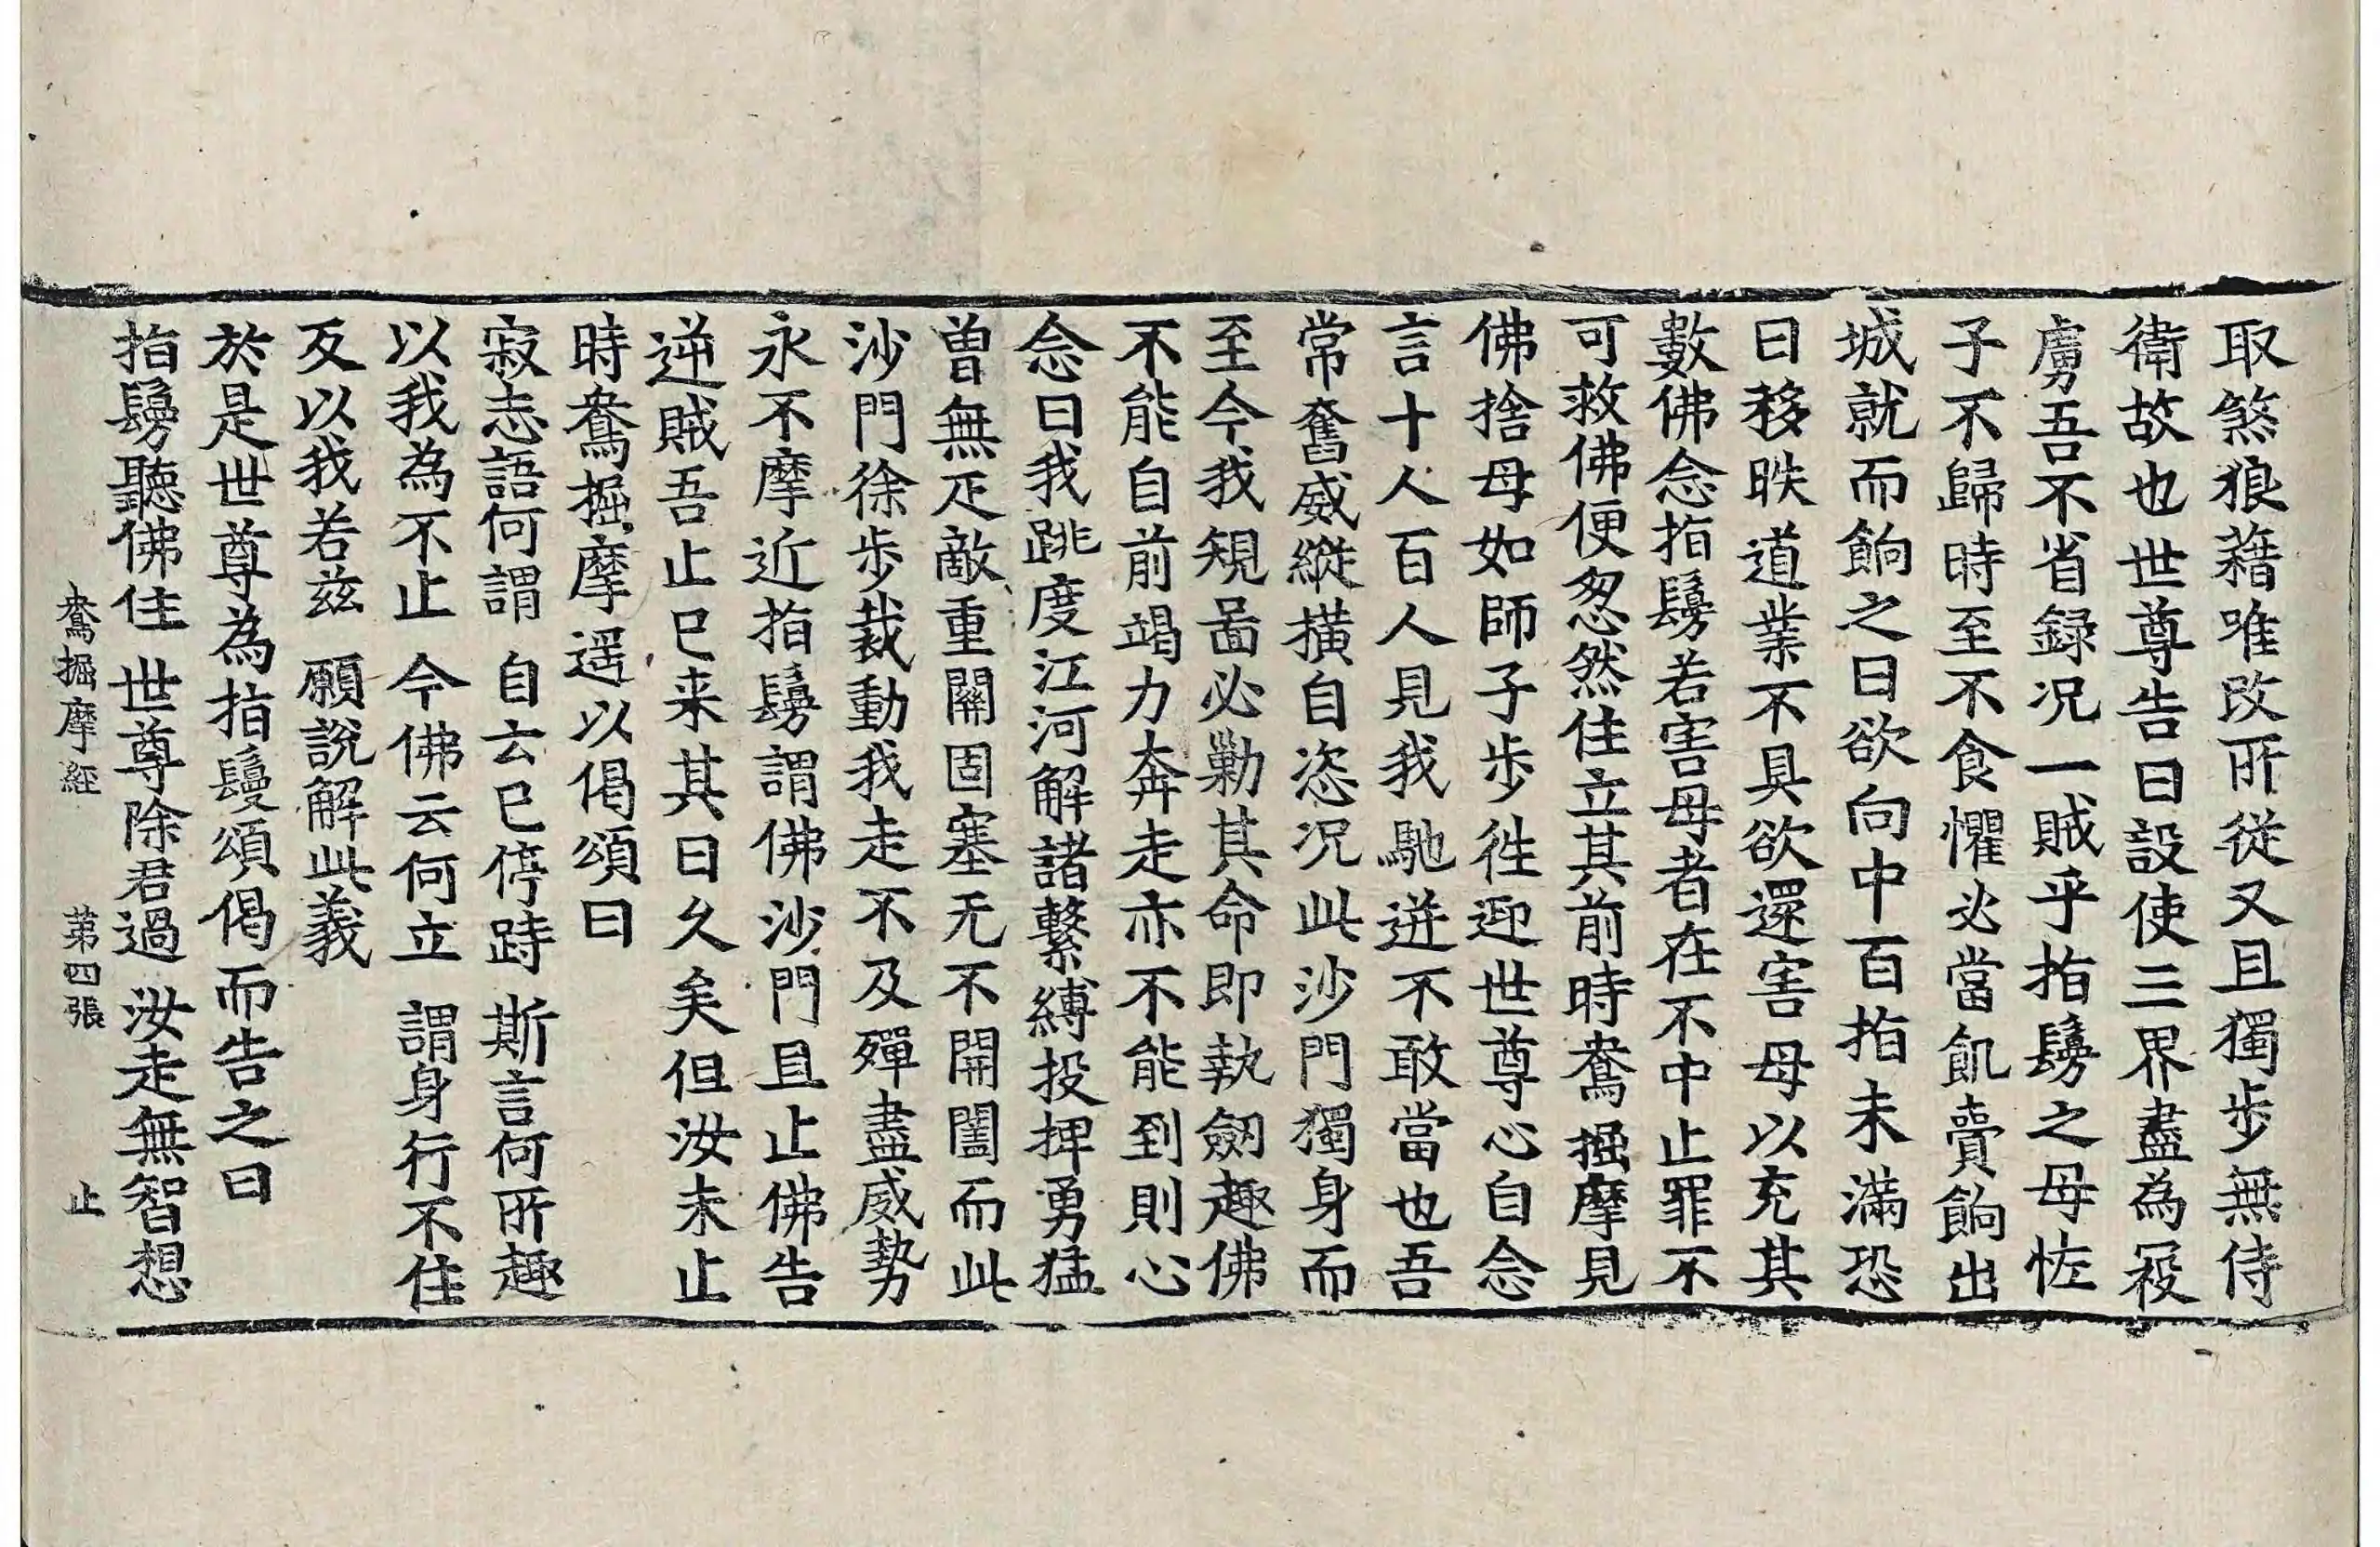 取煞狼藉唯改所從又且獨步無侍
衛故也世尊告曰設使三界盡為寇
虜吾不省録况一賊乎指鬘之母恠
子不歸時至不食懼必當飢賣餉出
城就而餉之曰欲向中百指未滿恐
日移昳道業不具欲還害母以充其
數佛念指鬘若害母者在不中止罪不
可救佛便忽然住立其前時鴦掘摩見
佛捨母如師子步徃迎世尊心自念
言十人百人見我馳迸不敢當也吾
常奮威縱橫自恣况此沙門獨身而
至今我規啚必勦其命即執劒趣佛
不能自前竭力奔走亦不能到則心
念曰我跳度江河解諸繫縛投捭勇猛
曽無疋敵重關固塞无不開闓而此
沙門徐步裁動我走不及殫盡威勢
永不摩近指鬘謂佛沙門且止佛告
逆賊吾止已来其日久矣但汝未止
時鴦掘摩遥以偈頌曰
寂志語何謂 自云已停跱 斯言何所趣
以我為不止 今佛云何立 謂身行不住
反以我若兹 願說解此義
於是世尊為指鬘頌偈而告之曰
指鬘聽佛住 世尊除君過 汝走無智想
鴦掘摩經 苐四張 止